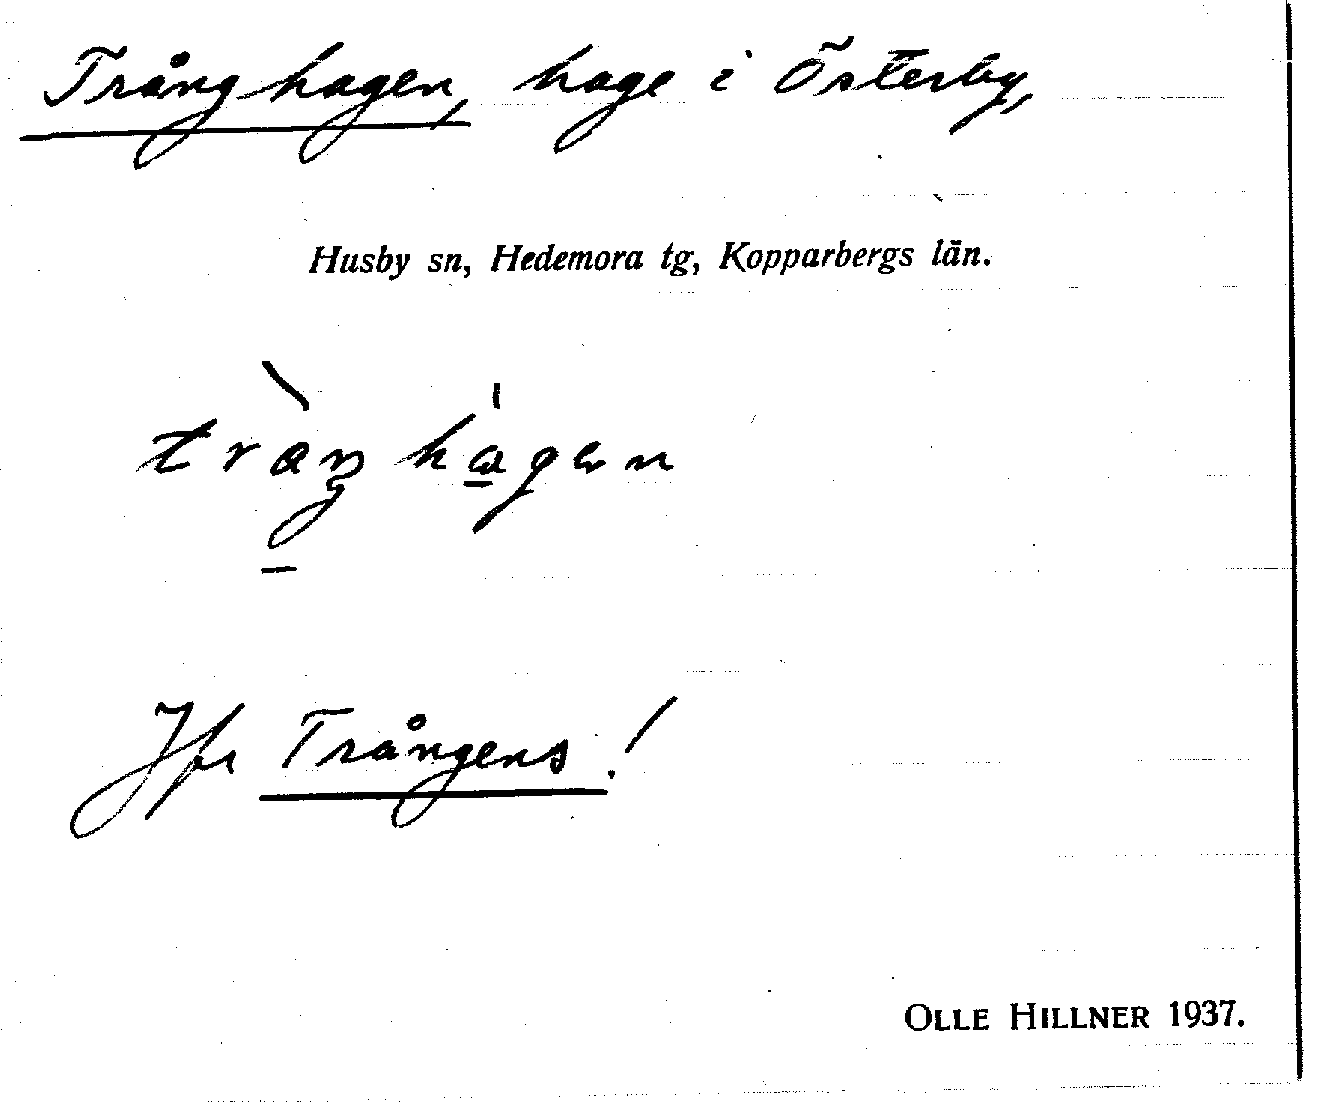 Trånghagen, hage i Österby,
Husby sn, Hedemora tg, Kopparbergs län.
Jfr Trångens!
OLLE HILLNER 1937.